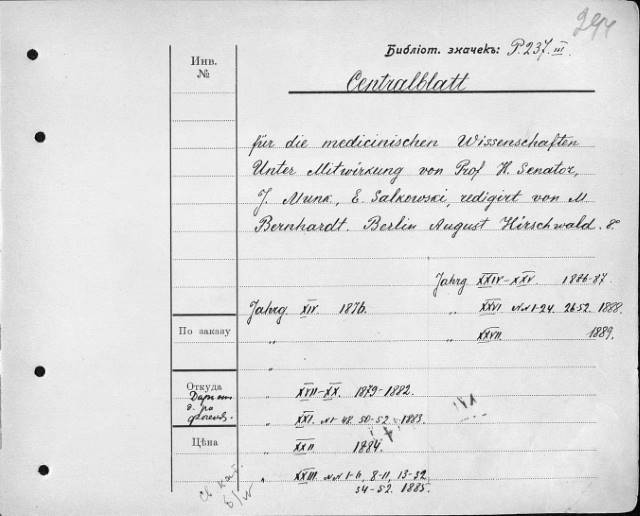 294
Библіот. значекъ: P.237.III.
Инв.
№
Centralblatt
für die medicinischen Wissenschaften
Unter Mitwirkung von Prof H. Senator,
J. Munk, E. Salkowski, redigirt von M.
Bernhardt. Berlin August Hirschwald. 8°
Jahrg XXIV–XXV. 1886-87.
Jahrg XIV 1876. „ XXVI №№ 1-24. 26-52. 1888.
По заказу
„ XXVII. 1889.
„
Откуда
„ XVII–XX. 1879–1882.
„ XXI. №1-48. 50-52. 1883.
Цѣна
„ XXII 1884.
„ XXIII. №№ 1-6, 8-11, 13-32
34-52. 1885.